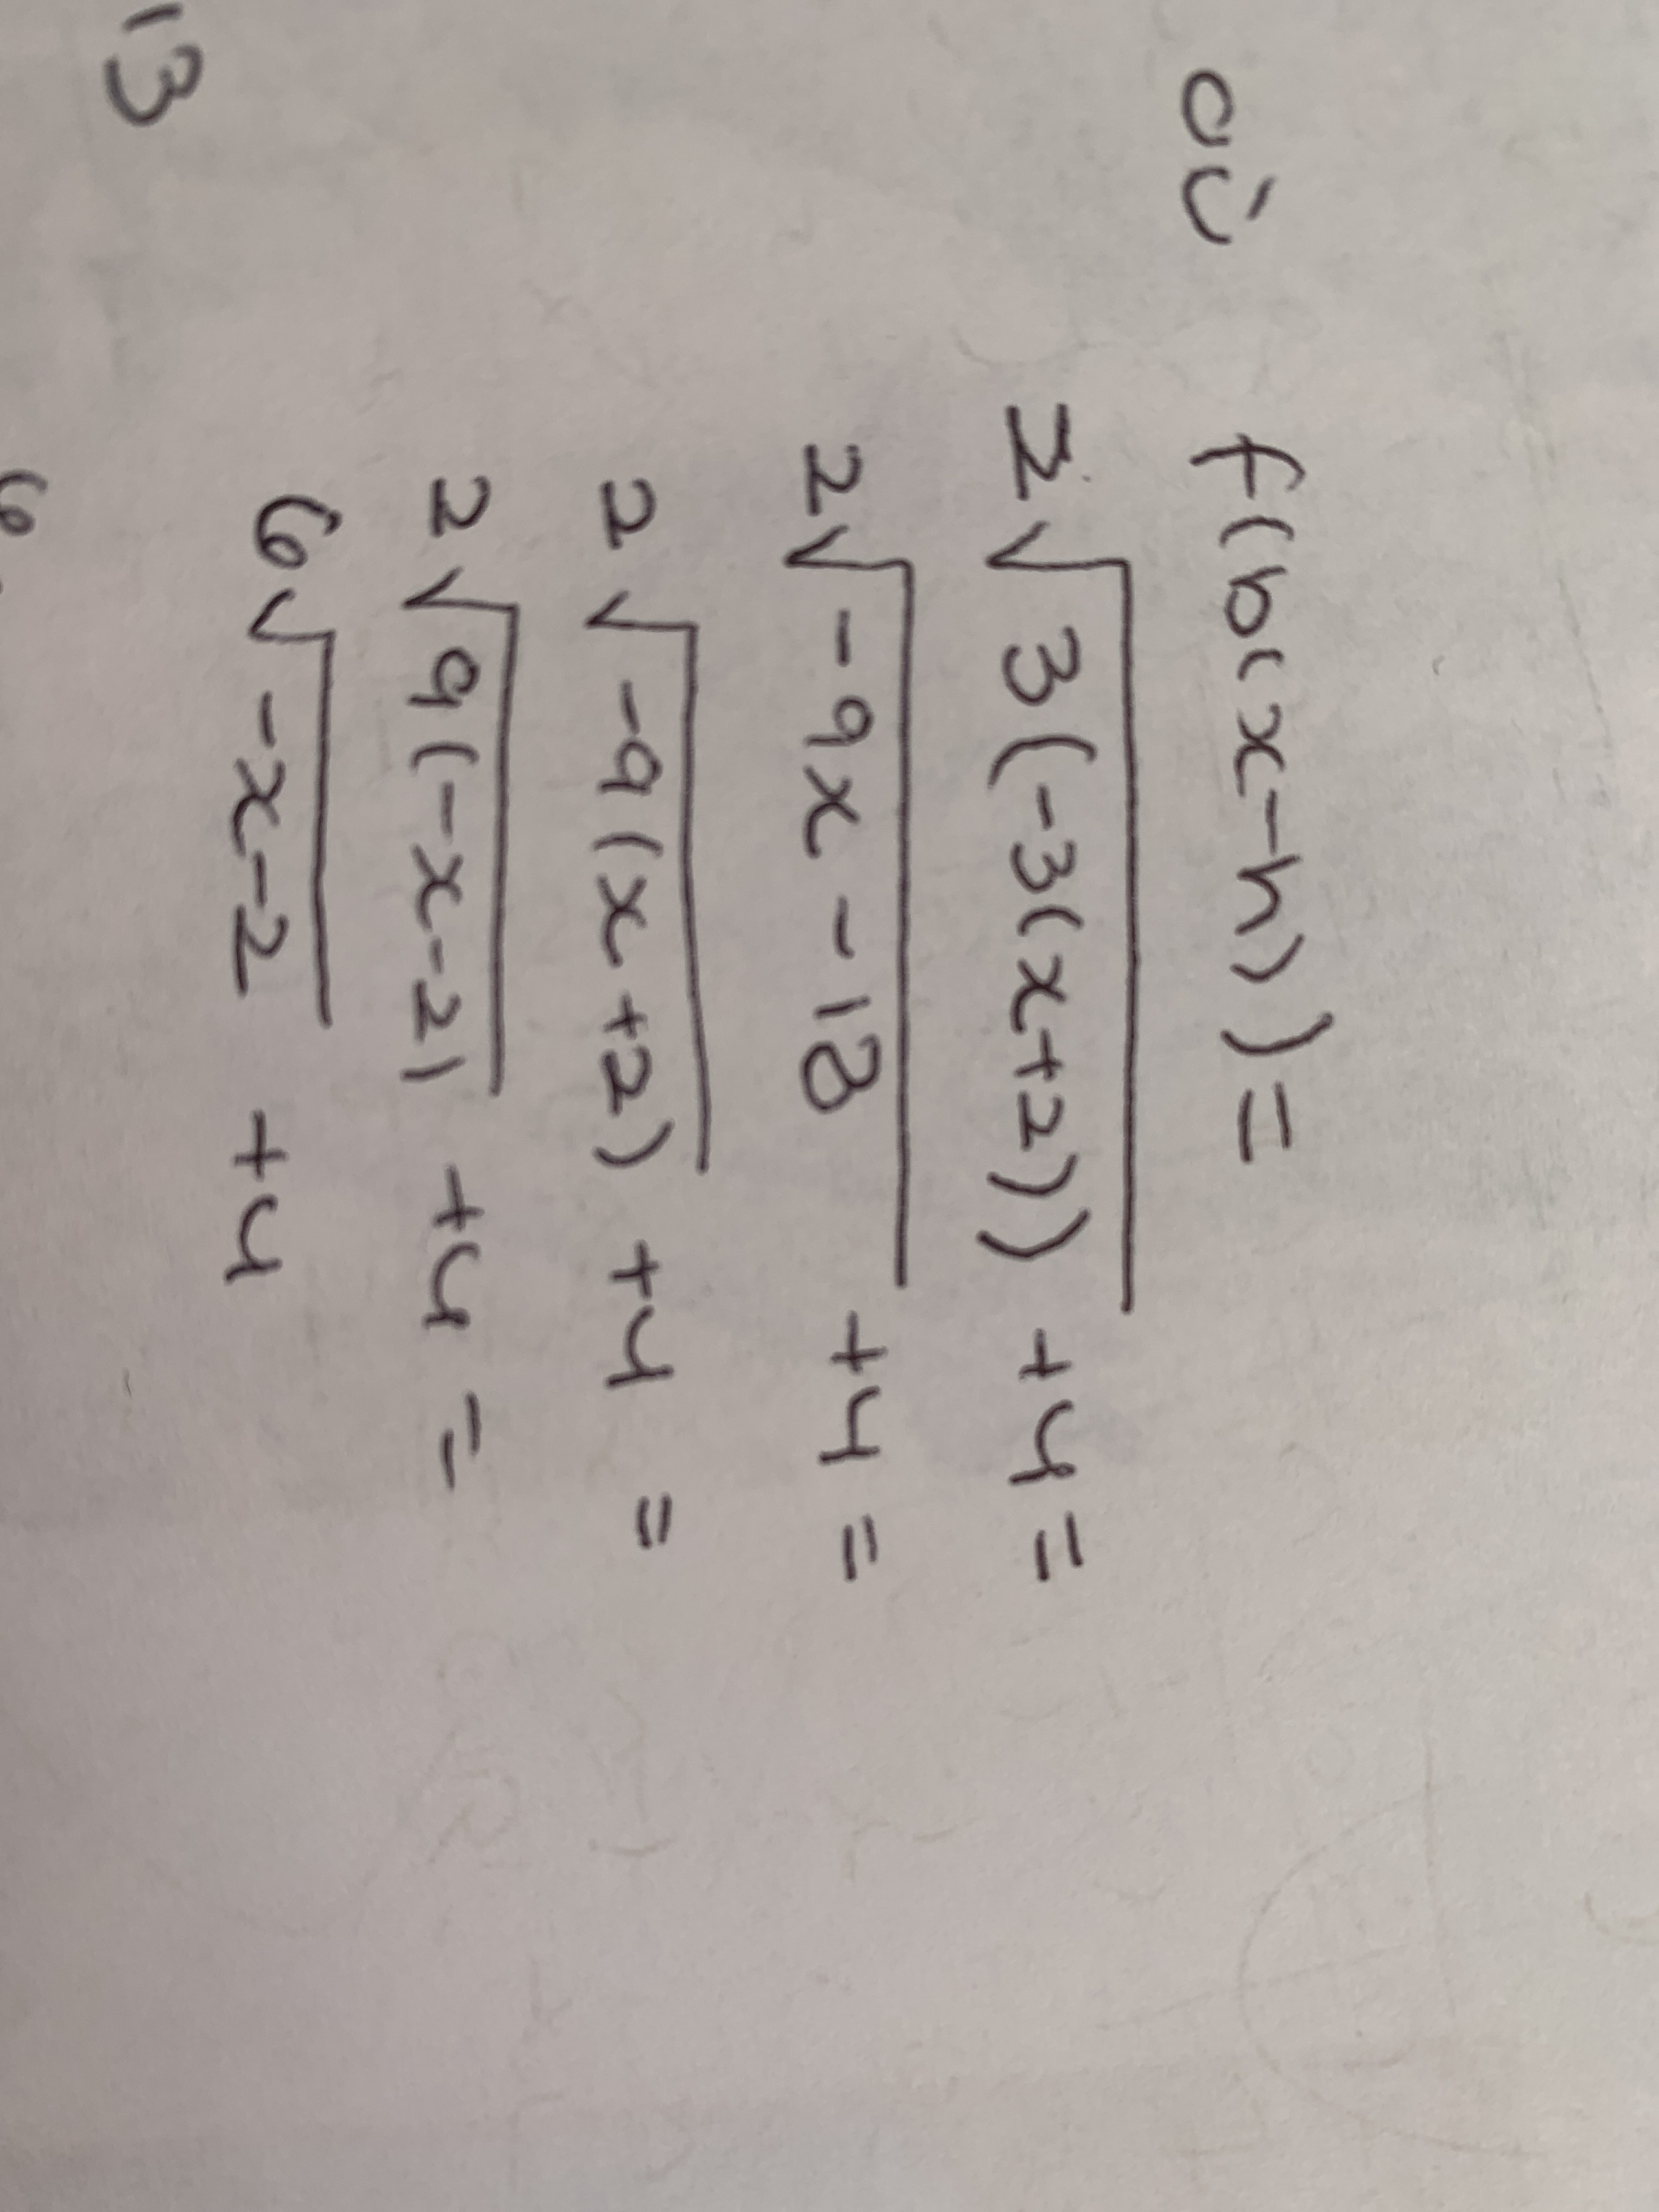 où f(b(x-h)) =
2√3(-3(x+2)) +4 =
2√-9x - 18 +4 =
2√-9(x+2) +4 =
2√9(-x-2) +4 =
6√-x-2 +4
13
6